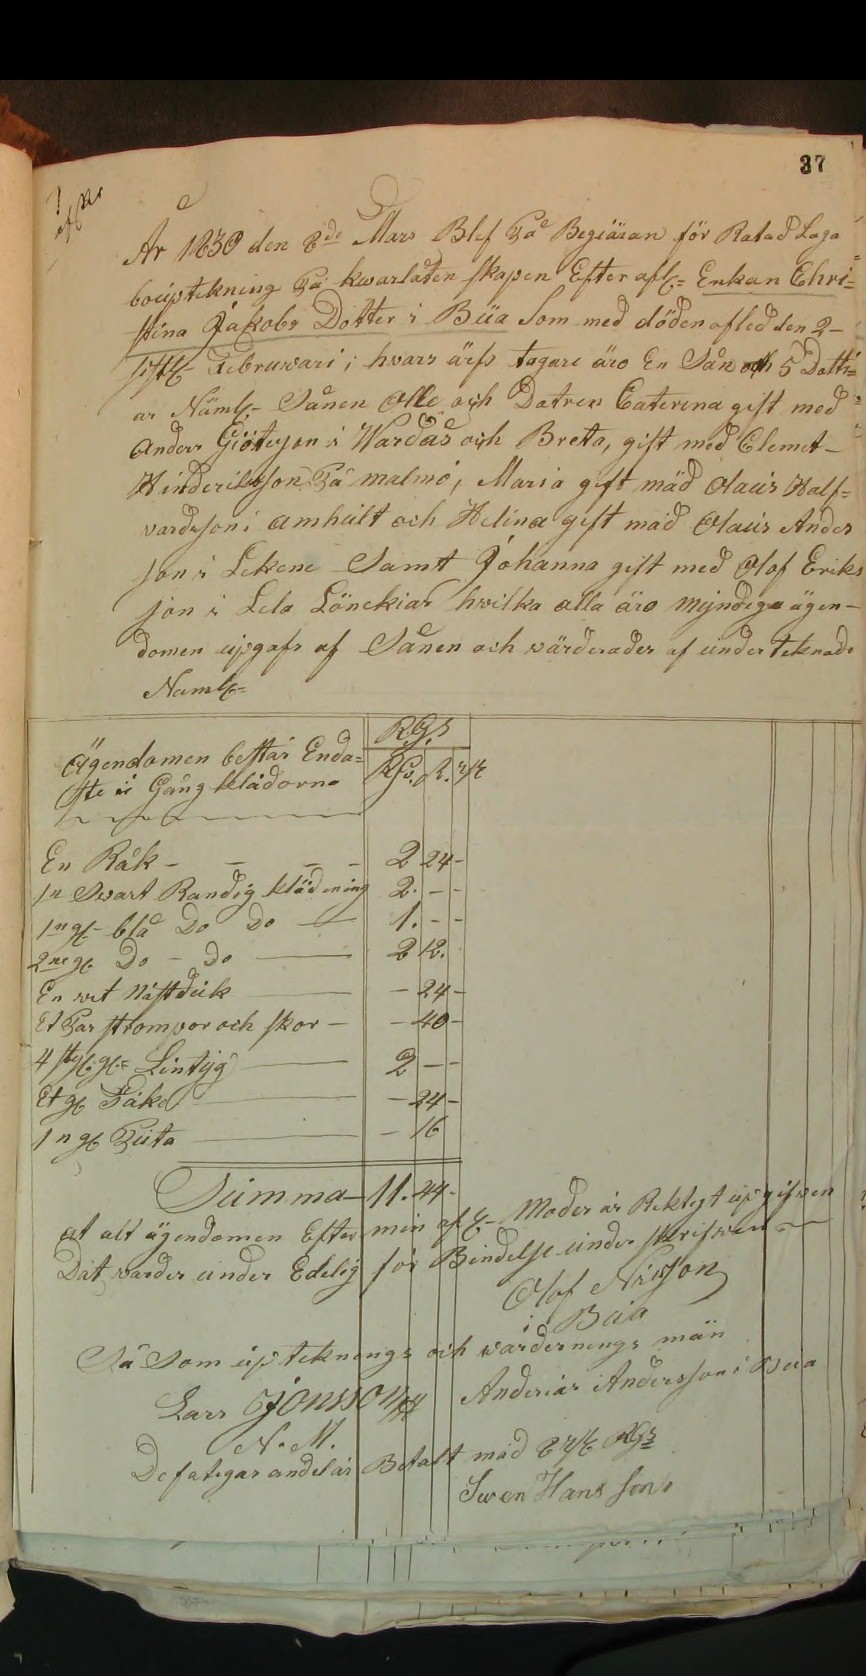 37
År 1830 den 8de Mars Blef På Begiäran för Rätad Laga
bouptekning På kwarlåten skapen Efter afl= Enkan Chri=
stina Jakobs Dotter i Büa Som med döden afled den 2-
sistl- Februwari; hvars ärfs tagare äro En Sån och 5 Dotti=
ar Näml- Sånen Olle och Datren Caterina gift med
Anders Giötesson i Wardås och Breta, gift med Clemet-
Hinderiksson På malmö, Maria gift mäd Olaus Half=
vardsson i amhult och Helina gift mäd Olaus Anders
son i Lekene Samt Johanna gift med Olof Eriks
son i Lela Lönekiar hwilka alla äro myndega ägen-
domen upgafs af Sånen och wärderades af under teknade
Naml=
Ägendomen består Enda=
ste i Gång kläderna
RGs
Rd. sk. rst
En Råk - - - - 2 24-
1n Swart Randig klädning 2. - -
1n gl- blå Do Do — 1. - -
2ne gl Do - do — 2 12.
En wet Nästduk — - 24-
Et Par strompor och skor - - 40-
4 st gl= Lintyg — 2 - -
Et gl Täke — - 24-
1n gl Püta — - 16
Summa 11. 44.
at alt ägendomen Efter min afl- Moder är Rektigt upgifwen
Dät warder under Edelig för Bindelse under skrifwen
Olof Nilsson
i Büa
Så Som up teknengs och wärdernengs män
Lars Jonsson
N. M.
Anderias Andersson i Büa
Defategar andelär Betalt mäd 8 rst RGs
Swen Hans son